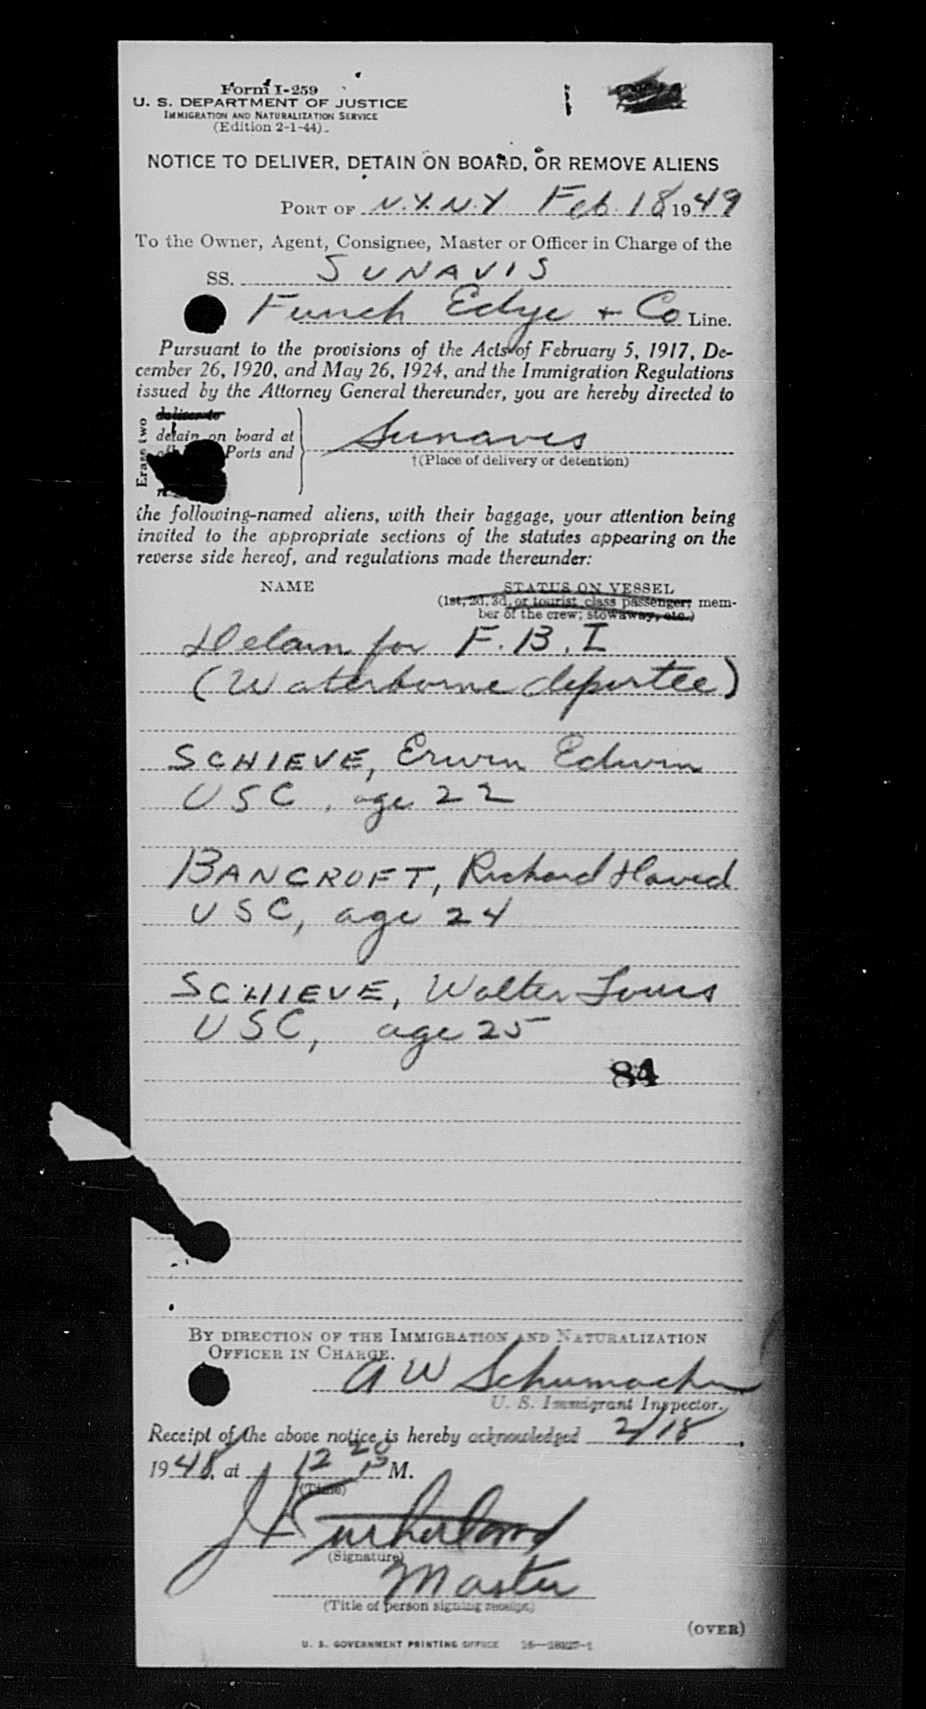 Form I-259
U. S. DEPARTMENT OF JUSTICE
IMMIGRATION AND NATURALIZATION SERVICE
(Edition 2-1-44)
NOTICE TO DELIVER, DETAIN ON BOARD, OR REMOVE ALIENS
PORT OF N.Y.N.Y Feb. 18 1949
To the Owner, Agent, Consignee, Master or Officer in Charge of the
SS. SUNAVIS
Funch Edye + Co Line.
Pursuant to the provisions of the Acts of February 5, 1917, De-
cember 26, 1920, and May 26, 1924, and the Immigration Regulations
issued by the Attorney General thereunder, you are hereby directed to
Erase two
deliver to
detain on board at
Ports and
Sunavis
†(Place of delivery or detention)
the following-named aliens, with their baggage, your attention being
invited to the appropriate sections of the statutes appearing on the
reverse side hereof, and regulations made thereunder:
NAME
STATUS ON VESSEL
(1st, 2d, 3d, or tourist class passenger; mem-
ber of the crew; stowaway, etc.)
Detain for F.B.I
(Waterborne deportee)
SCHIEVE, Erwin Edwin
USC, age 22
BANCROFT, Richard
USC, age 24
SCHIEVE, Walter Louis
USC, age 25
84
BY DIRECTION OF THE IMMIGRATION AND NATURALIZATION
OFFICER IN CHARGE.
A W Schumacher
U. S. Immigrant Inspector.
Receipt of the above notice is hereby acknowledged 2/18,
1948, at 12 20 P M.
(Time)
(Signature)
Master
(Title of person signing receipt)
(OVER)
U. S. GOVERNMENT PRINTING OFFICE